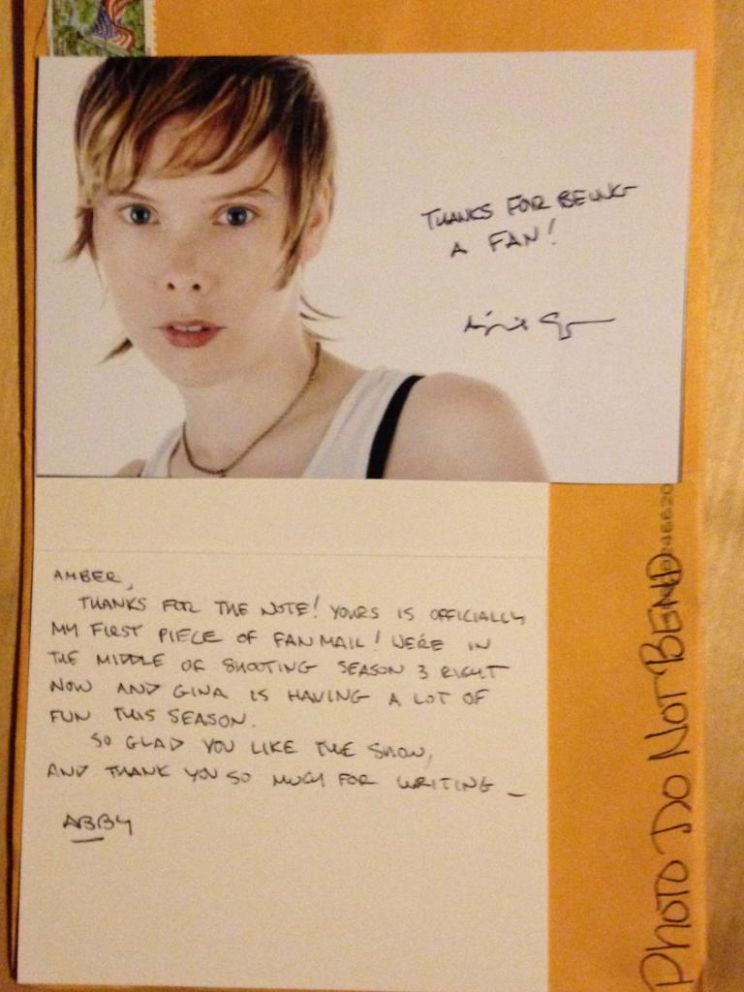 THANKS FOR BEING
A FAN!
AMBER,
THANKS FOR THE NOTE! YOURS IS OFFICIALLY
MY FIRST PIECE OF FAN MAIL! WE'RE IN
THE MIDDLE OF SHOOTING SEASON 3 RIGHT
NOW AND GINA IS HAVING A LOT OF
FUN THIS SEASON.
SO GLAD YOU LIKE THE SHOW,
AND THANK YOU SO MUCH FOR WRITING –
ABBY
PHOTO DO NOT BEND